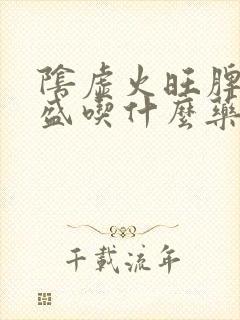 陰虛火旺脾
盛喫什麼藥
千載流年